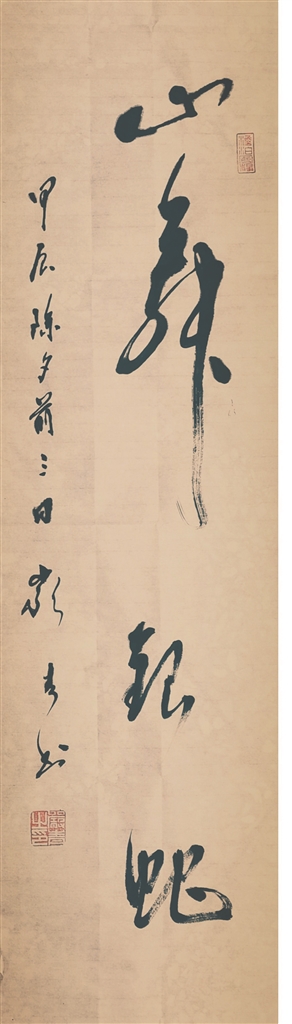 山舞銀蛇
甲辰除夕前三日 书